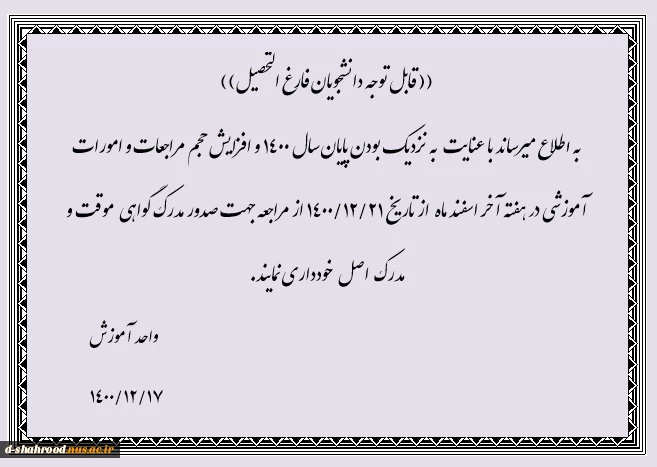 ((قابل توجه دانشجویان فارغ التحصیل))
به اطلاع میرساند با عنایت به نزدیک بودن پایان سال ۱۴۰۰ و افزایش حجم مراجعات و امورات
آموزشی در هفته آخر اسفند ماه از تاریخ ۱۴۰۰/۱۲/۲۱ از مراجعه جهت صدور مدرک گواهی موقت و
مدرک اصل خودداری نمایند.
واحد آموزش
۱۴۰۰/۱۲/۱۷
d-shahrood.nus.ac.ir